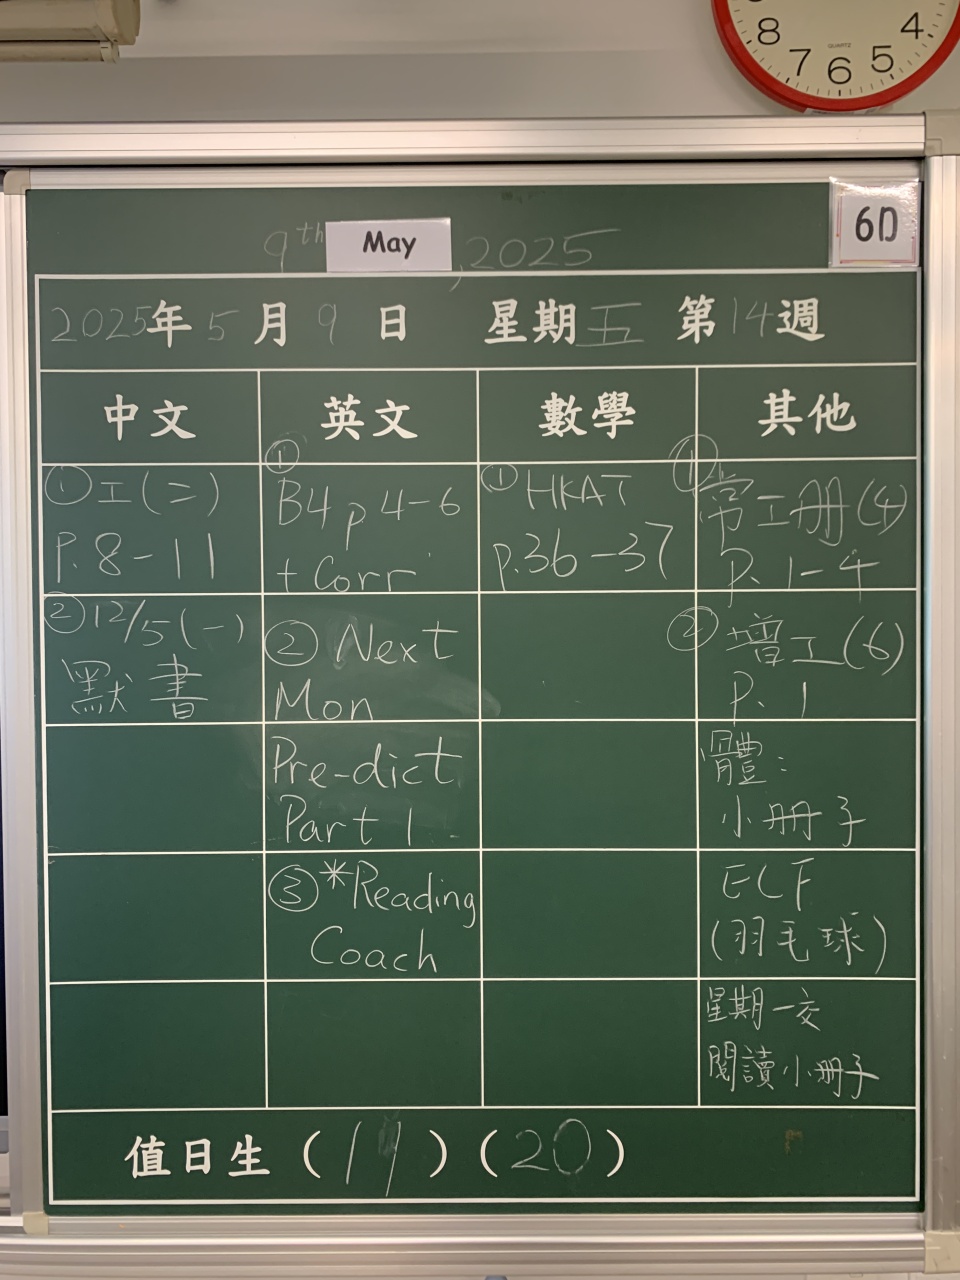 8 7 6 5 4
QUARTZ
6D
9th May, 2025
2025年5月9日 星期五 第14週
中文 英文 數學 其他
① 工(二)
P.8-11
①
B4 p4-6
+ Corr
① HKAT
p.36-37
① 常工册(4)
P. 1-4
② 12/5(一)
默書
② Next
Mon
Pre-dict
Part 1
③ *Reading
Coach
② 普工(6)
P. 1
體:
小册子
ECF
(羽毛球)
星期一交
閱讀小册子
值日生(19)(20)